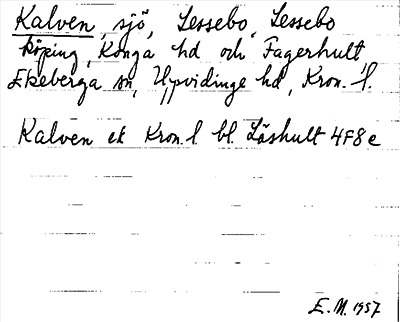 Kalven, sjö, Lessebo, Lessebo
köping, Konga hd och Fagerhult,
Ekeberga sn, Uppvidinge hd, Kron. l.
Kalven ek Kron. l. bl. Löshult 4F8e
E.M. 1957